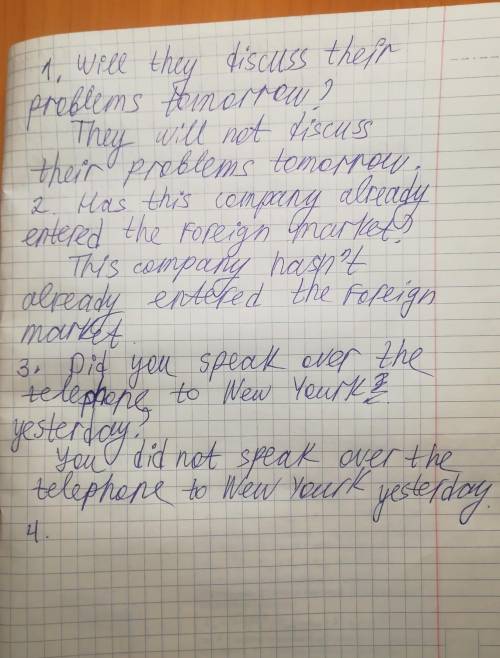 1. Will they discuss their
problems tomorrow?
They will not discuss
their problems tomorrow.
2. Has this company already
entered the foreign market?
This company hasn't
already entered the foreign
market.
3. Did you speak over the
telephone to New Yourk
yesterday?
You did not speak over the
telephone to New Yourk yesterday.
4.